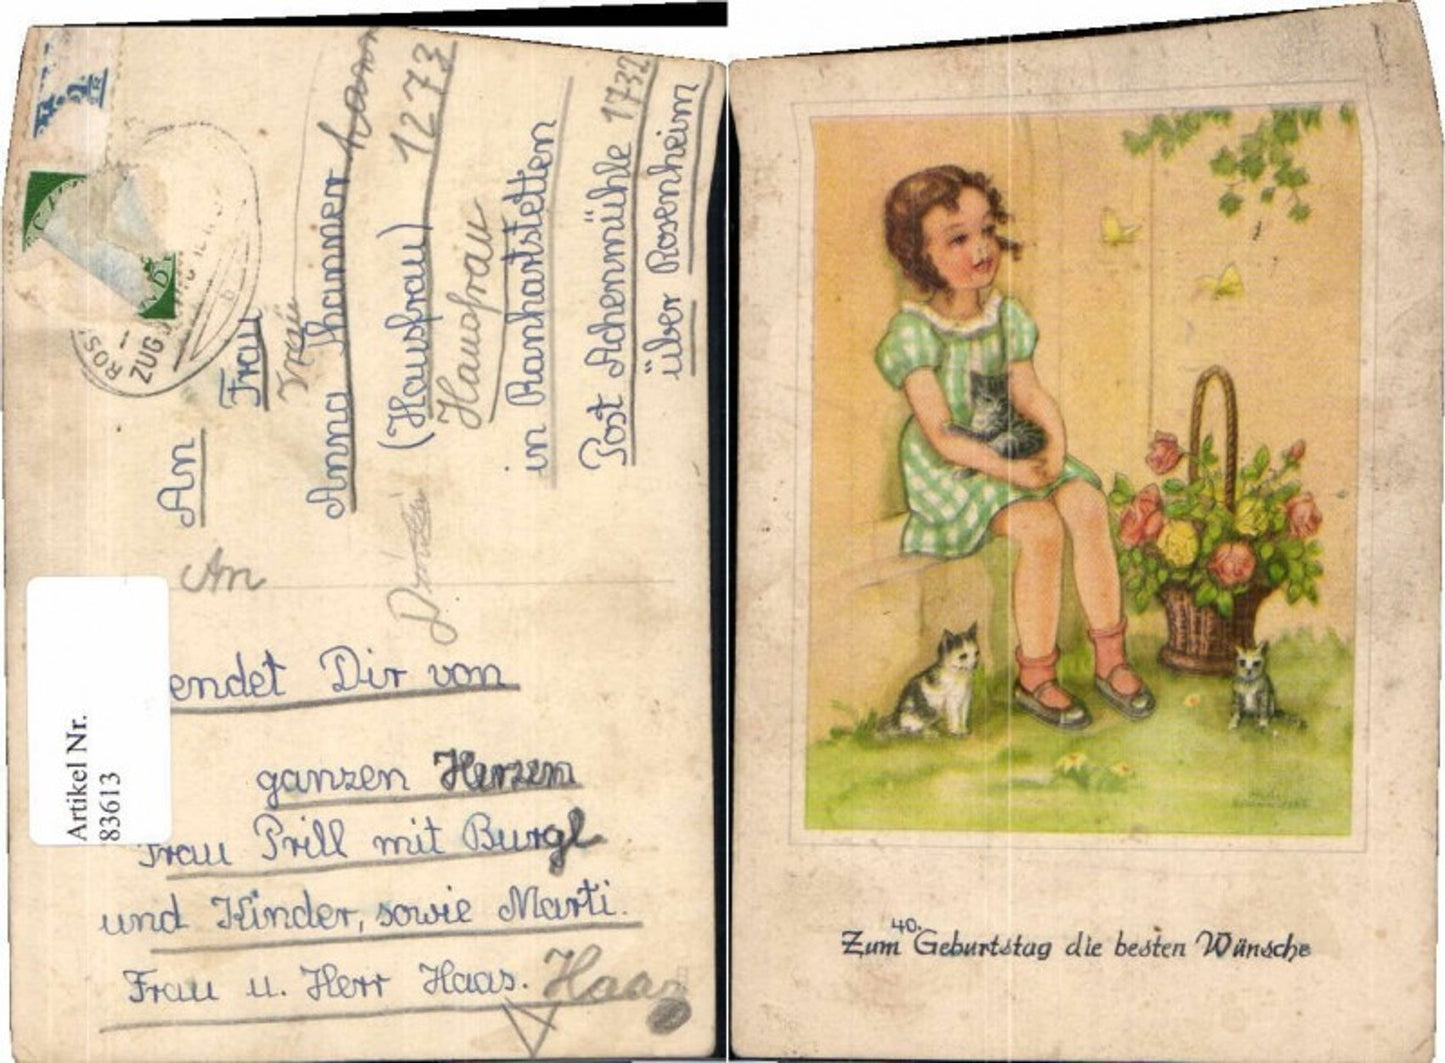 An
Frau
Frau
Anna Thanner
(Hausfrau) 1273
Hausfrau
in Ranhartstetten
Post Achenmühle 1732
über Rosenheim
An
ROS
ZUG
endet Dir von
ganzen Herzem
Frau Prill mit Burgl
und Kinder, sowie Marti.
Frau u. Herr Haas. Haas
Artikel Nr.
83613
40.
Zum Geburtstag die besten Wünsche